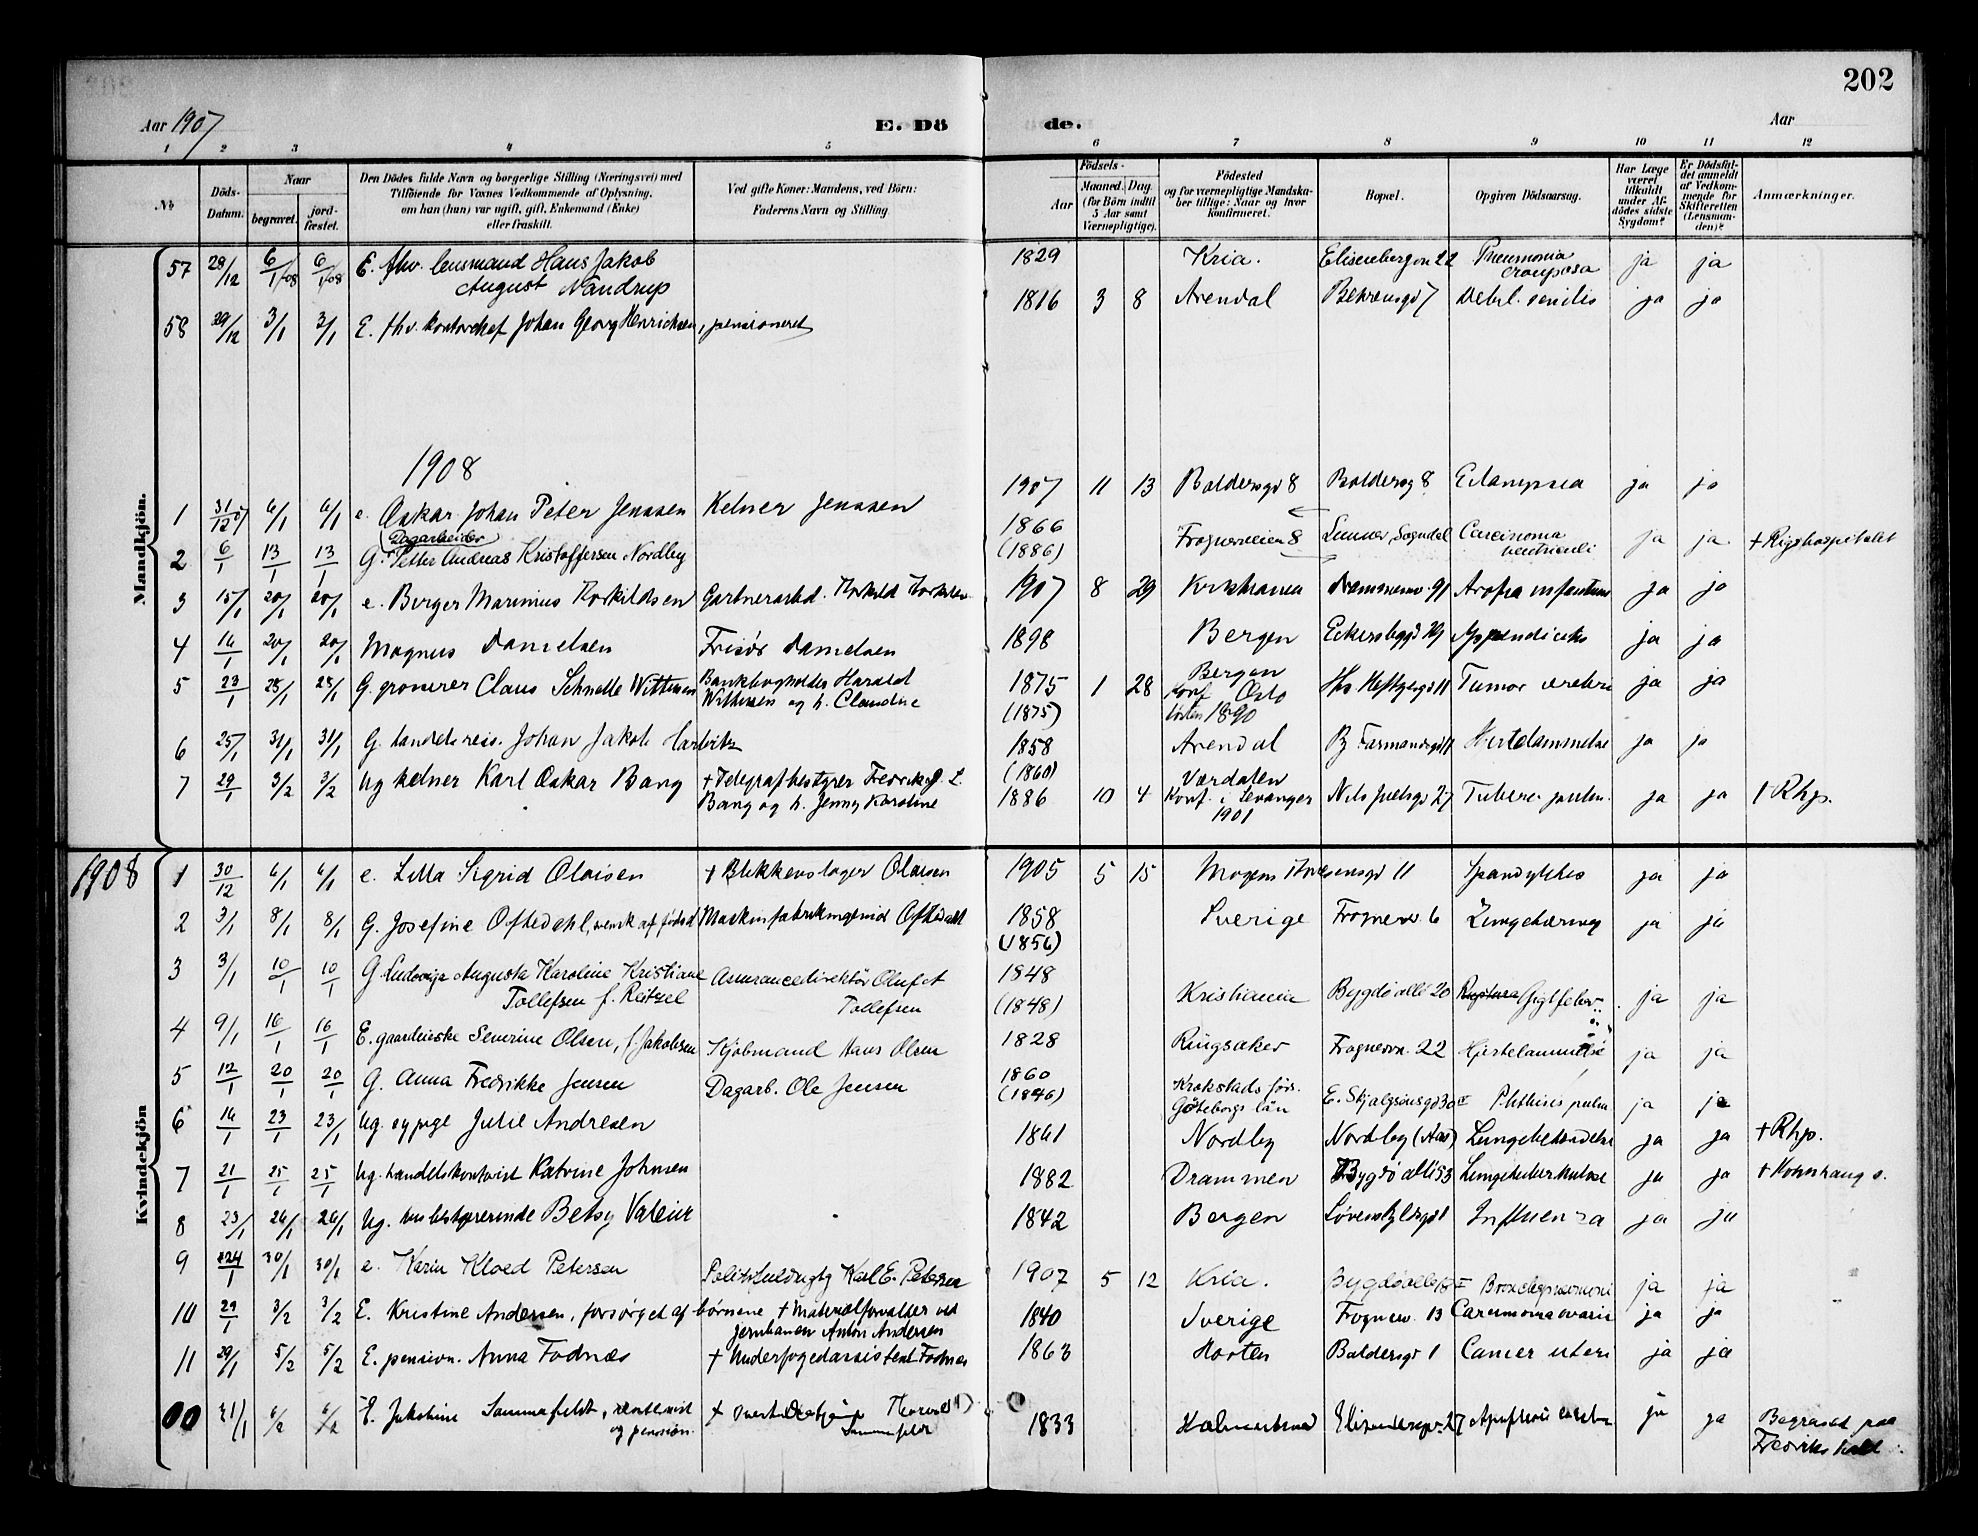 202
Aar 1907
E. Dö
de.
Aar
1 2 3 4 5 6 7 8 9 10 11 12
No
Döds-Datum.
Naar
begravet.
jord-fæstet.
Den Dödes fulde Navn og borgerlige Stilling (Næringsvei) med
Tilföiende for Voxnes Vedkommende af Oplysning,
om han (hun) var ugift, gift, Enkemand (Enke)
eller fraskilt.
Ved gifte Koner: Mandens, ved Börn:
Faderens Navn og Stilling
Födsels-
Aar
Maaned. Dag.
(for Börn indtil
5 Aar samt
Værnepligtige).
Födested
og for værnepligtige Mandska-
ber tillige: Naar og hvor
konfirmeret.
Bopæl.
Opgiven Dödsaarsag.
Har Læge
været
tilkaldt
under Af-
dödes sidste
Sygdom?
Er Dödsfal-
det anmeldt
af Vedkom-
mende for
Skifteretten
(Lensman-
den)?
Anmærkninger.
Mandkjön.
57 28/12 6/1 08 6/1 08 E. fhv. lensmand Hans Jakob 1829 Kria. Elisenbergvn 22 Pneumonia crouposa ja ja
August Nandrup
58 29/12 3/1 3/1 E. fhv. kontorchef Johan Georg Henrichsen, pensioneret 1816 3 8 Arendal Behrensgd 7 Debil. senilis ja ja
1908
1 31/12 07 6/1 6/1 e. Oskar Johan Peter Jenssen Kelner Jenssen 1907 11 13 Baldersgd 8 Baldersg 8 Eclampsia ja ja
(Dagarbeider)
2 6/1 13/1 13/1 G. Petter Andreas Kristoffersen Nordby 1866 (1886) Frognerveien 8 Lunner, Sogndal Carcinoma ventriculi ja ja + Rigshospitalet
3 15/1 20/1 20/1 e. Birger Marinius Thorkildsen Gartnerarbd. Thorkild Thorkildsen 1907 8 29 Kristiania Drammensv 91 Atrofia infantum ja ja
4 16/1 20/1 20/1 Magnus Danielsen Frisör Danielsen 1898 Bergen Eckersbggd 29 Appendicitis ja ja
5 23/1 28/1 28/1 G. grosserer Claus Schnelle Wittusen Bankbogholder Harald 1875 1 28 Bergen Ths. Heftyesgd 11 Tumor cerebri ja ja
Wittusen og h. Claudine (1875) Konf. Oslo
1890
6 25/1 31/1 31/1 G. handelsreis. Johan Jakob Harbitz 1858 (1860) Arendal Bj Farmandsgd 17 Hjertelammelse ja ja
7 29/1 3/2 3/2 Ug kelner Karl Oskar Bang + Telegrafbestyrer Fredrik J. L. 1886 10 4 Værdalen Nils Juelsgd 27 Tuberc. pulm. ja ja + Rhp.
Bang og h. Jenny Karoline Konf. i Levanger
1901
1908
Kvindekjön
1 30/12 6/1 6/1 e. Lilla Sigrid Olaisen + Blikkenslager Olaisen 1905 5 15 Mogens Thorsensgd 11 Spondylitis ja ja
2 3/1 8/1 8/1 G. Josefine Oftedahl, svensk af födsel Maskinfabrikingeniör Oftedahl 1858 (1856) Sverige Frognerv 6 Lungetæring ja ja
3 3/1 10/1 10/1 G. Ludoviga Augusta Karoline Kristiane Assurancedirektör Oluf A 1848 (1848) Kristiania Bygdö allé 20 Gigtfeber ja ja
Tollefsen f. Reitzel Tollefsen
4 9/1 16/1 16/1 E. gaardeierske Severine Olsen, f. Jakobsen Kjöbmand Hans Olsen 1828 Ringsaker Frognervn. 22 Hjertelammelse ja ja
5 12/1 20/1 20/1 G. Anna Fredrikke Jensen Dagarb. Ole Jensen 1860 (1846) Krokstads förs. E. Skjalgsönsgd 30 Phthisis pulm ja ja
Göteborgs län
6 14/1 23/1 23/1 Ug. sypige Julie Andresen 1861 Nordby Nordby (Aas) Lungebetændelse ja ja + Rhp.
7 21/1 25/1 25/1 Ug. handelskontorist Katrine Johnsen 1882 Drammen Bygdö allé 53 Lungetuberkulose ja ja
8 23/1 26/1 26/1 Ug. husbestyrerinde Betsy Valeur 1842 Bergen Lövenskjoldsgd 1 Influenza ja ja
9 24/1 30/1 30/1 e. Karin Kloed Petersen Politifuldmægtg Karl E. Petersen 1907 5 12 Kria. Bygdöallé 18 Bronchopneumoni ja ja
10 29/1 3/2 3/2 E. Kristine Andersen, forsörget af börnene + Materialforvalter ved 1840 Sverige Frognerv. 13 Carcinoma ovarii ja ja
jernbanen Anton Andersen
11 29/1 5/2 5/2 E. pension. Anna Fodnæs + Underfogedassistent Fodnæs 1863 Horten Baldersgd 1 Cancer uteri ja ja
00 31/1 6/2 6/2 E. Jakobine Sommerfeldt, 1833 Holmestrand Elisenbergv. 27 ja ja Begravet paa
og pension. Sommerfeldt Fredrikshald